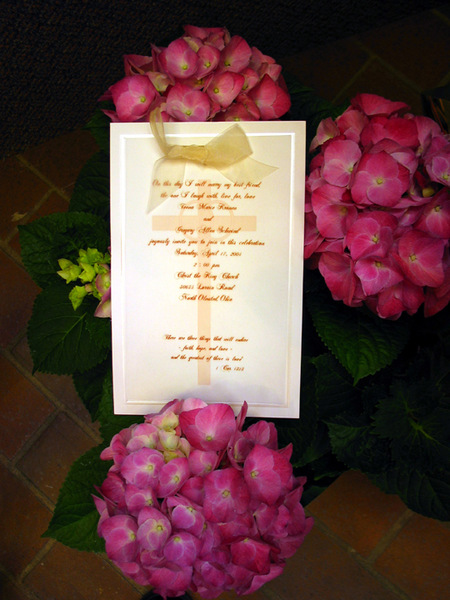 On this day I will marry my best friend,
the one I laugh with live for, love
Marie
and
Gregory Allen
joyously invite you to join in this celebration
Saturday, April 17, 2004
2:00 pm
Christ the King Church
Lorain Road
North Olmsted Ohio
There are three things that will endure
- faith, hope, and love -
and the greatest of these is love"
1 Cor. 13:13